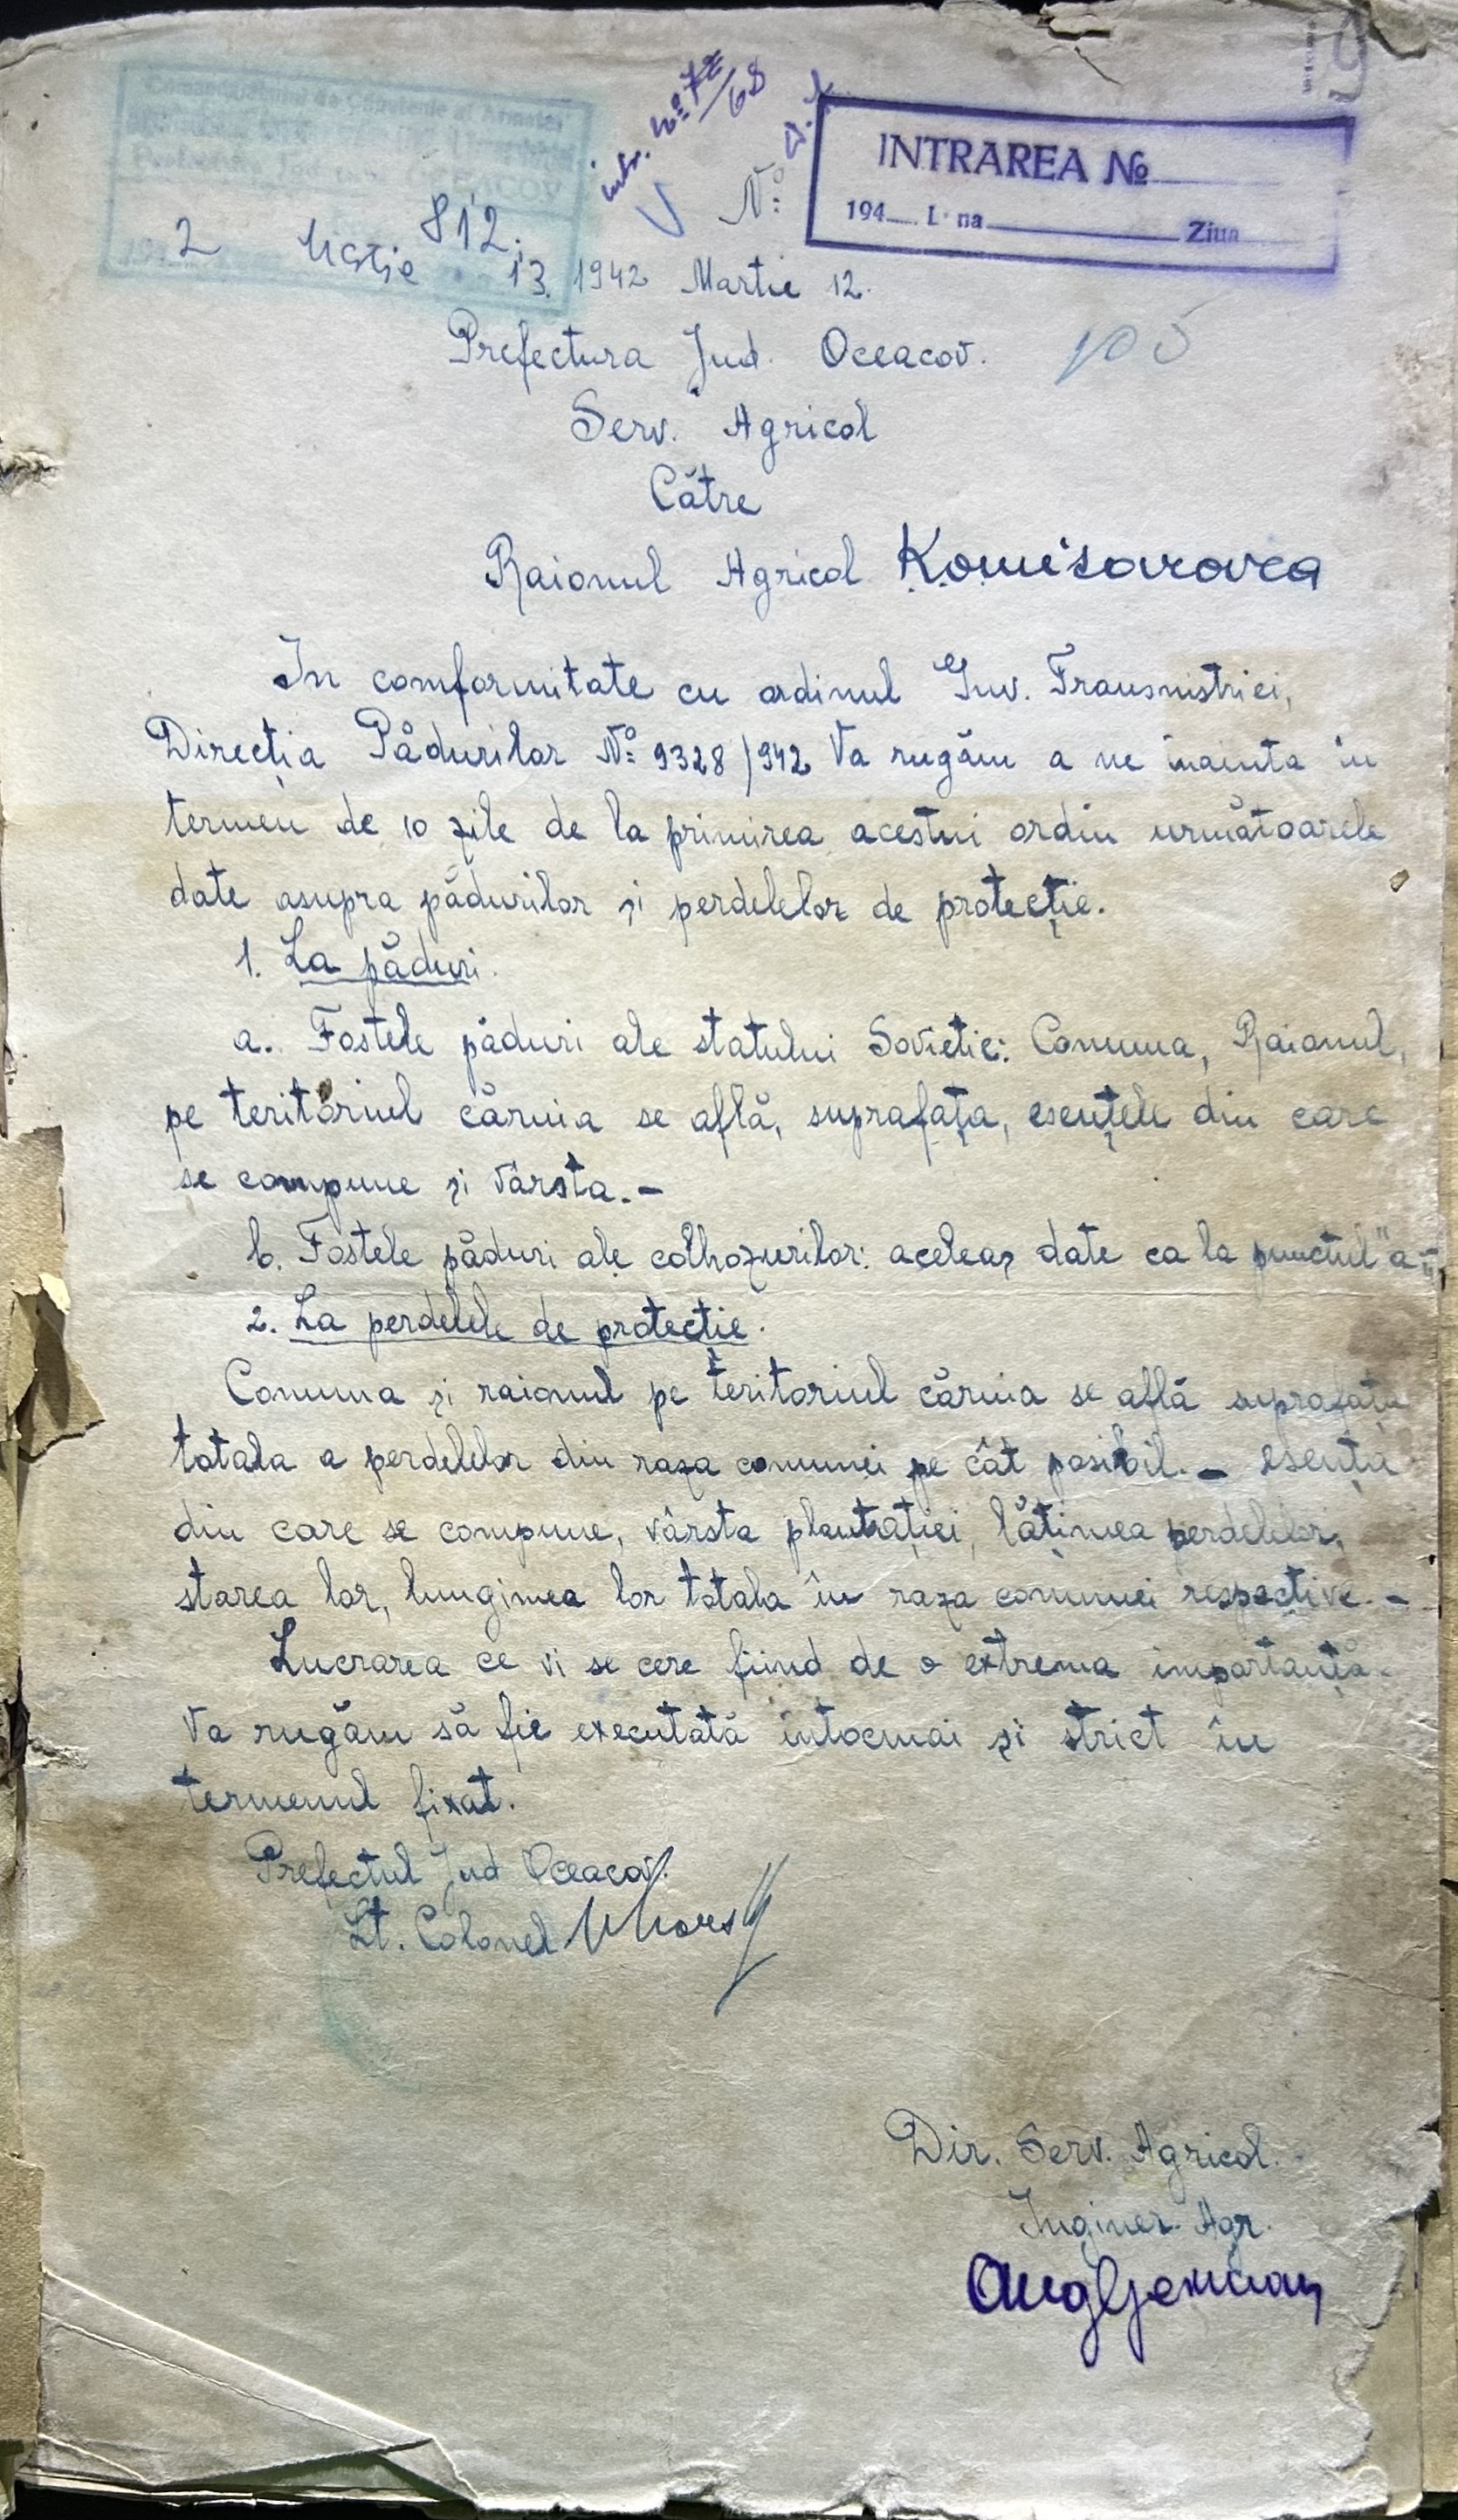 Comandamentul de Căpetenie al Armatei
812.
2 Martie 13.
intr. No 72/68
INTRAREA №
194__ L-na ____ Ziua
No
1942 Martie 12.
Prefectura Jud. Oceacov.
105
Serv. Agricol
Către
Raionul Agricol Komisarovca
In comformitate cu ordinul Guv. Transnistriei,
Direcția Pădurilor No 9328/942 Va rugăm a ne înainta în
termen de 10 zile de la primirea acestui ordin următoarele
date asupra pădurilor și perdelelor de protecție.
1. La păduri.
a. Fostele păduri ale statului Sovietic: Comuna, Raionul,
pe teritoriul căruia se află, suprafața, esențele din care
se compune și vârsta.-
b. Fostele păduri ale colhozurilor: aceleaș date ca la punctul "a"
2. La perdelele de protecție.
Comuna și raionul pe teritoriul căruia se află suprafața
totala a perdelelor din raza comunei pe cât posibil.- esența
din care se compune, vârsta plantației, lățimea perdelelor,
starea lor, lungimea lor totala în raza comunei respective.-
Lucrarea ce vi se cere fiind de o extrema importanță.
Va rugăm să fie executată întocmai și strict în
termenul fixat.
Prefectul Jud Oceacov.
Lt. Colonel
Dir. Serv. Agricol.
Inginer Agr.
Aug Gherman